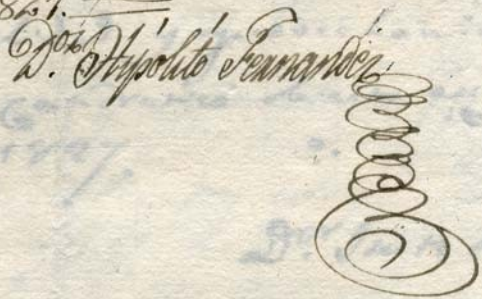 821.
D.ᵒⁿ Hypólito Fernandez